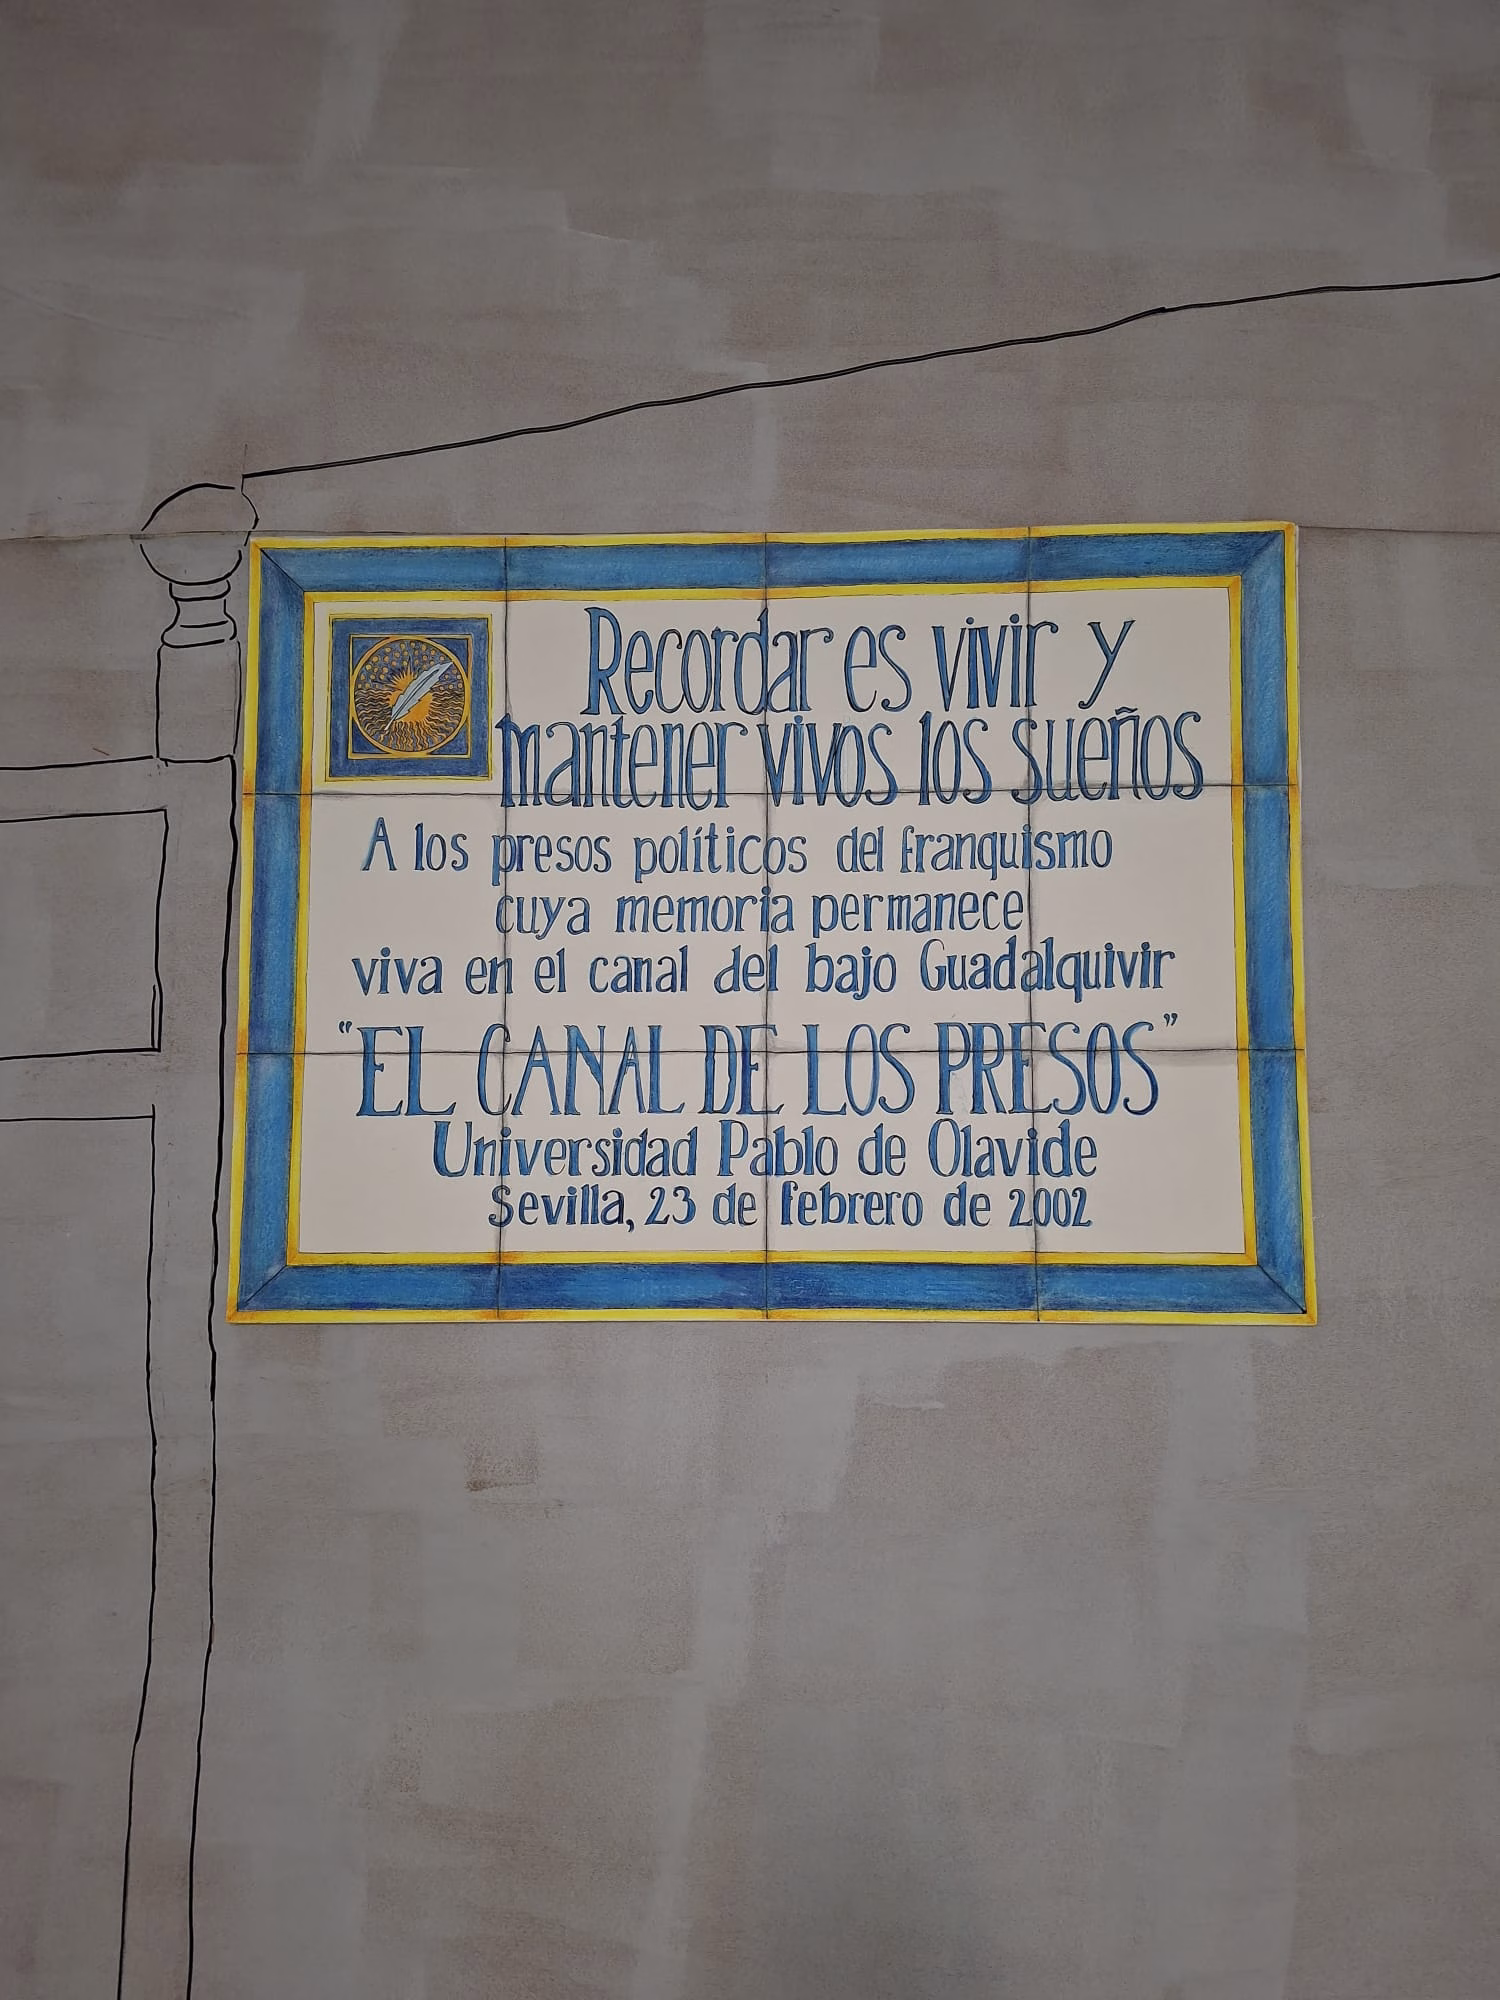 Recordar es vivir y
mantener vivos los sueños
A los presos políticos del franquismo
cuya memoria permanece
viva en el canal del bajo Guadalquivir
"EL CANAL DE LOS PRESOS"
Universidad Pablo de Olavide
Sevilla, 23 de febrero de 2002